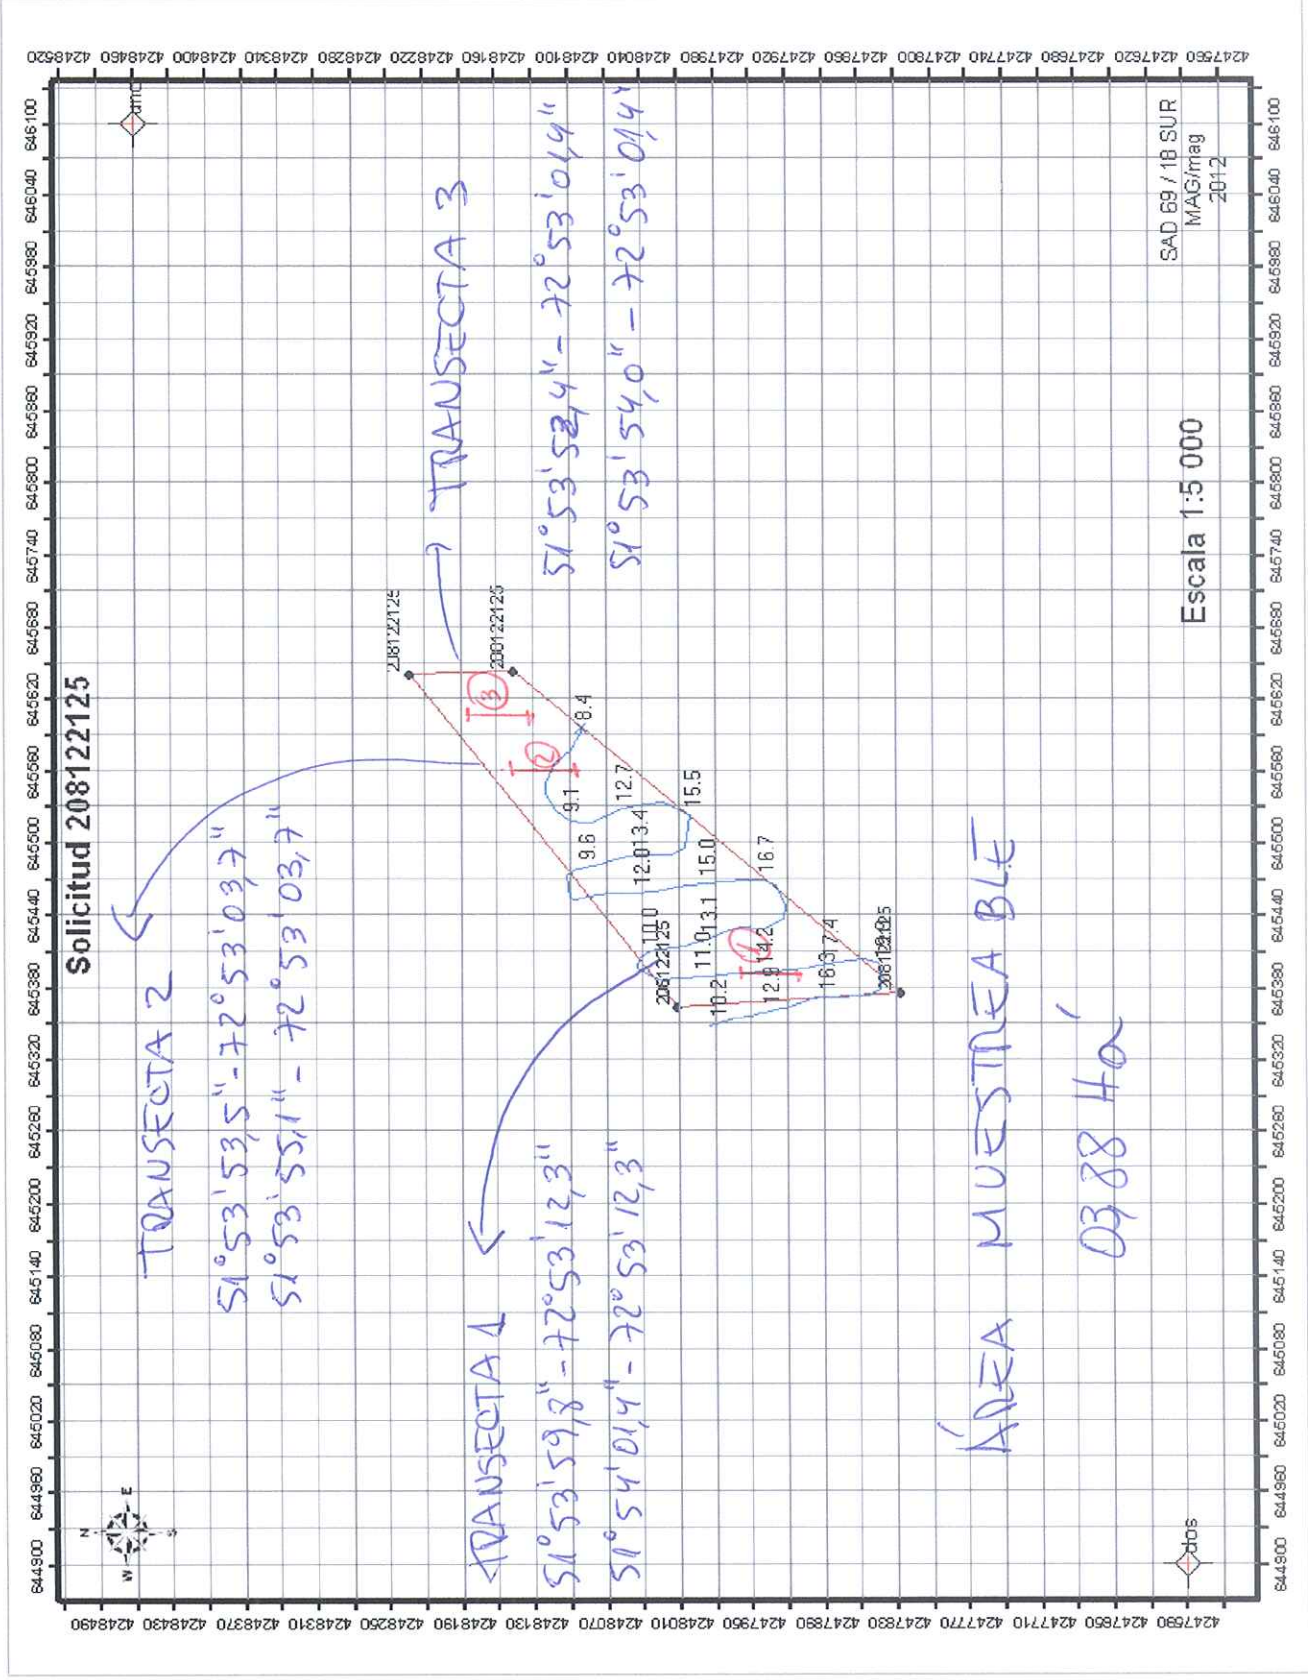 Solicitud 208122125
644900 644960 645020 645080 645140 645200 645260 645320 645380 645440 645500 645560 645620 645680 645740 645800 645860 645920 645980 646040 646100
4248520 4248460 4248400 4248340 4248280 4248220 4248160 4248100 4248040 4247980 4247920 4247860 4247800 4247740 4247680 4247620 4247560
4248490 4248430 4248370 4248310 4248250 4248190 4248130 4248070 4248010 4247950 4247890 4247830 4247770 4247710 4247650 4247590
N
W E
S
uno
TRANSECTA 2
51°53'53,5" - 72°53'03,7"
51°53'55,1" - 72°53'03,7"
208122125
TRANSECTA 3
51°53'52,4" - 72°53'01,4"
51°53'54,0" - 72°53'01,4"
TRANSECTA 1
51°53'59,8" - 72°53'12,3"
51°54'01,4" - 72°53'12,3"
3
2
8.4
9.1
12.7
9.6
12.0 13.4
15.5
15.0
16.7
10.0
11.0 13.1
1
14.2
10.2
12.9
16.3 17.4
ÁREA MUESTREABLE
03,88 Há
Escala 1:5 000
SAD 69 / 18 SUR
MAG/mag
2012
dos
644900 644960 645020 645080 645140 645200 645260 645320 645380 645440 645500 645560 645620 645680 645740 645800 645860 645920 645980 646040 646100